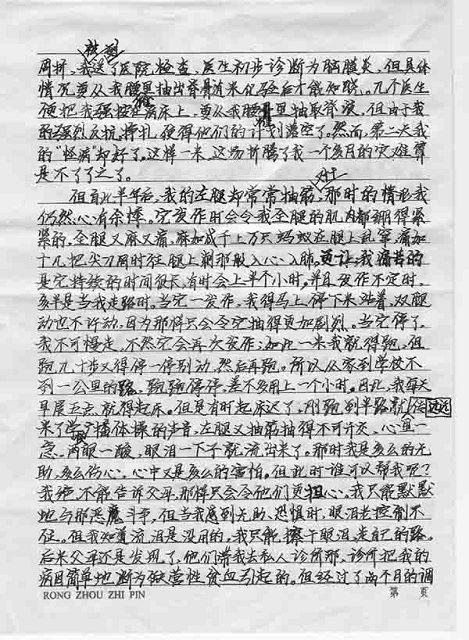 被逼
周折,我送了医院检查,医生初步诊断为脑膜炎,但具体
情况要从我腰里抽出脊骨液来化验后才能知晓,几个医生
便把我强按在病床上,要从我腰骨里抽取脊液,但由于我
的强烈反抗、挣扎,使得他们的计划落空了。然而,第二天我
的“怪病”却好了。这样一来,这场折腾了我一个多月的灾难算
是不了了之了。
但自此半年后,我的左腿却常常抽筋,那时的情形我
仍然心有余悸。它发作时会令我歪腿的肌肉都绷得紧
紧的,歪腿又麻又痛,麻如成千上万只蚂蚁在腿上乱窜,痛如
十几把尖刀同时往腿上刺那般入心、入肺。更让我痛苦的
是它持续的时间很长,有时会上半个小时。并且发作不定时,
多半是当我走路时。当它一发作,我得马上停下来站着,双腿
动也不许动,因为那样只会令它抽得更加剧烈。当它停了,
我不可慢走,不然它会再次发作;如此一来我就得跑。但
跑几十步又得停一停别动,然后再跑。所以从家到学校不
到一公里的路,跑跑停停,差不多用上一个小时。因此,我每天
早晨五点就得起床。但是有时起床迟了,刚跑到半路就 远远
来了学校播体操的声音,左腿又抽筋抽得不可开交,心宜一
急,两眼一酸,眼泪一下子就流出来了。那时我是多么的无
助,多么伤心,心中又是多么的害怕。但此时谁可以帮我呢?
我绝不能告诉父母,那样只会令他们更担心。我只能默默
地与那恶魔斗争,但当我感到无助、恐惧时,眼泪老控制不
住。但我知道流泪是没用的,我只能擦干眼泪走自己的路。
后来父母还是发现了,他们带我去私人诊所那,诊所把我的
病因简单地断为缺营性贫血引起的。但经过了两个月的调
RONG ZHOU ZHI PIN 第 页